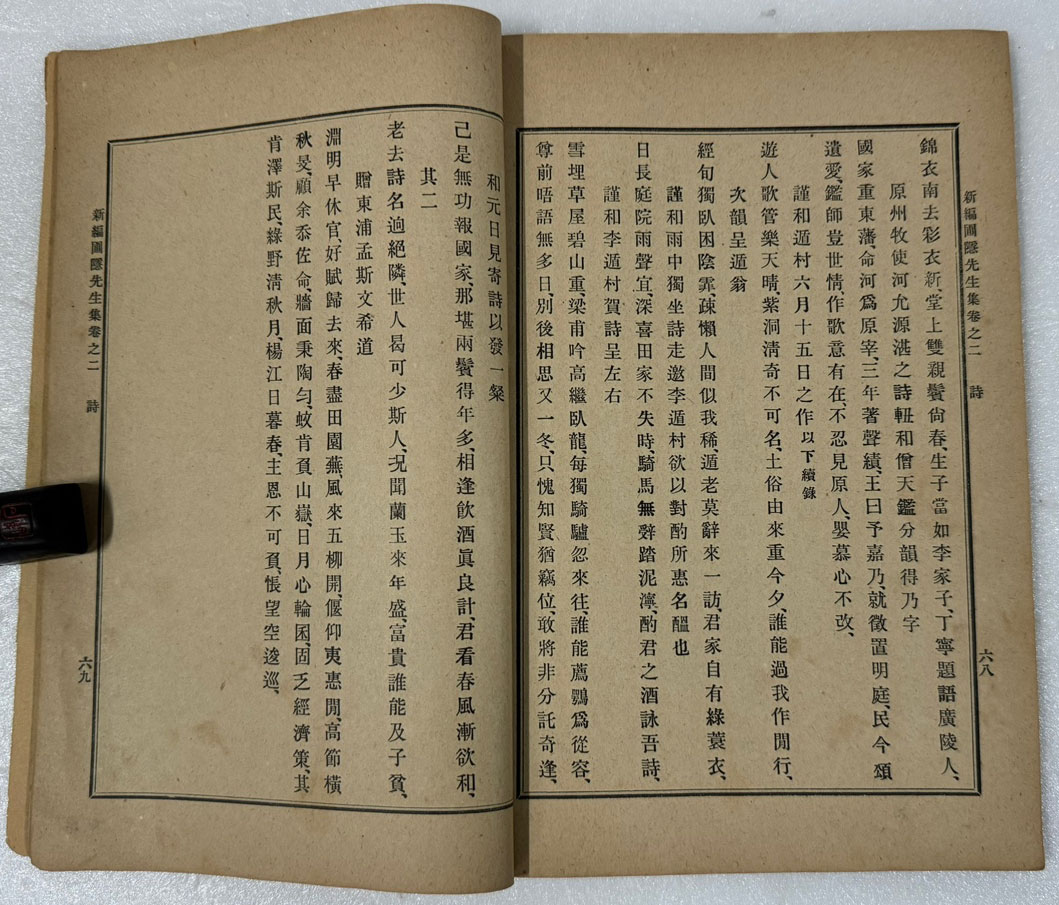 新編圃隱先生集卷之二　詩
六八
錦衣南去彩衣新、堂上雙親鬢尙春、生子當如李家子、丁寧題語廣陵人、
原州牧使河允源湛之詩軸和僧天鑑分韻得乃字
國家重東藩、命河爲原宰、三年著聲績、王曰予嘉乃、就徵置明庭、民今頌
遺愛、鑑師豈世情、作歌意有在、不忍見原人、嬰慕心不改、
謹和遁村六月十五日之作以下續錄
遊人歌管樂天晴、紫洞淸奇不可名、土俗由來重今夕、誰能過我作閒行、
次韻呈遁翁
經旬獨臥困陰霏、疎懶人間似我稀、遁老莫辭來一訪、君家自有綠蓑衣、
謹和雨中獨坐詩走邀李遁村欲以對酌所惠名醞也
日長庭院雨聲宜、深喜田家不失時、騎馬無辭踏泥濘、酌君之酒詠吾詩、
謹和李遁村賀詩呈左右
雪埋草屋碧山重、梁甫吟高繼臥龍、每獨騎驢忽來往、誰能薦鶚爲從容、
尊前晤語無多日、別後相思又一冬、只愧知賢猶竊位、敢將非分託奇逢、
和元日見寄詩以發一粲
己是無功報國家、那堪兩鬢得年多、相逢飮酒眞良計、君看春風漸欲和、
其二
老去詩名逈絕隣、世人曷可少斯人、況聞蘭玉來年盛、富貴誰能及子貧、
贈東浦孟斯文希道
淵明早休官、好賦歸去來、春盡田園蕪、風來五柳開、偃仰夷惠間、高節橫
秋旻、顧余忝佐命、牆面秉陶勻、蚊肯負山嶽、日月心輪囷、固乏經濟策、其
肯澤斯民、綠野淸秋月、楊江日暮春、主恩不可負、悵望空逡巡、
新編圃隱先生集卷之二　詩
六九